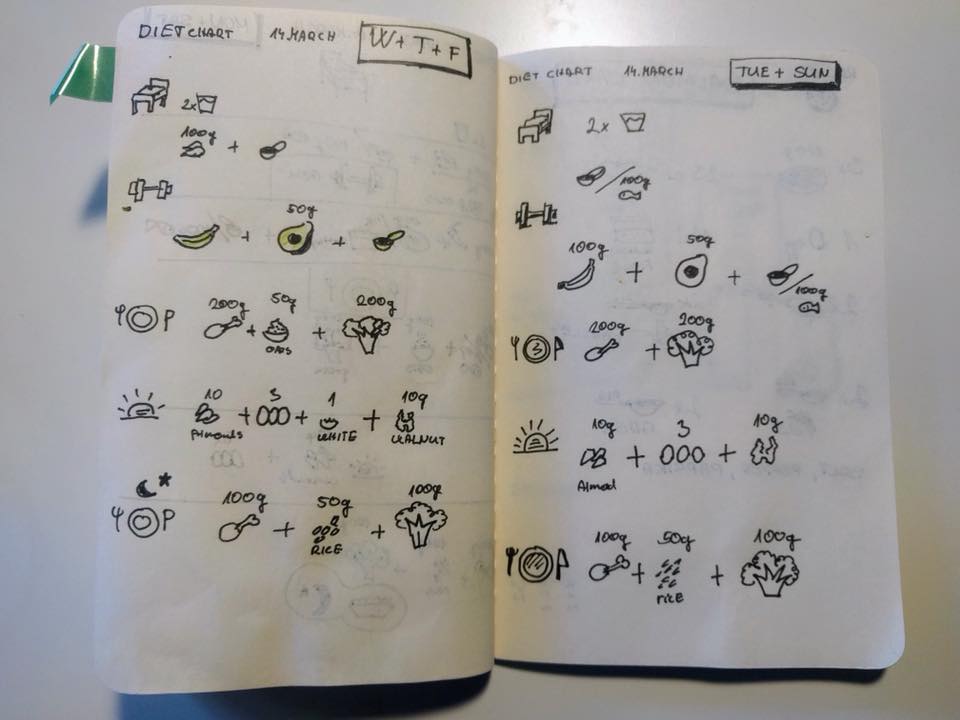 DIET CHART 14.MARCH W+T+F
2x
100g +
50g
+ +
200g 50g 200g
+ +
OATS
10 3 1 10g
+ + +
Almonds WHITE WALNUT
100g 50g 100g
+ +
RICE
DIET CHART 14.MARCH TUE + SUN
2x
/100g
100g 50g
+ + /100g
200g 200g
+
10g 3 10g
+ +
Almod
100g 50g 100g
+ +
rice